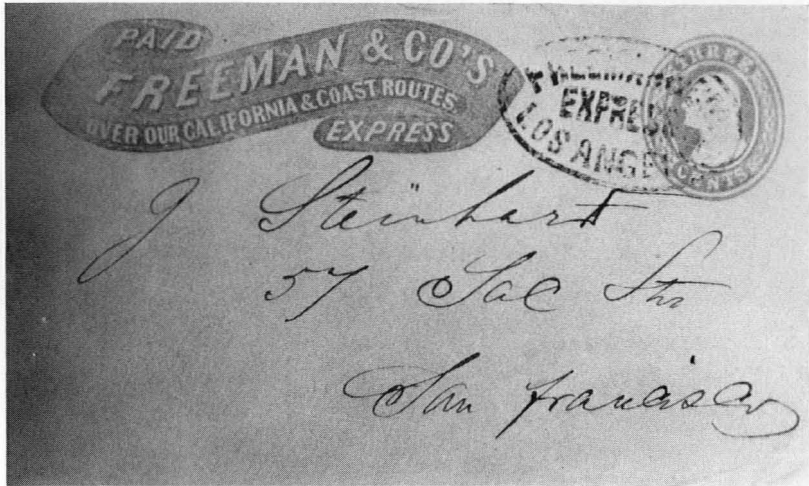 PAID
FREEMAN & CO'S
OVER OUR CALIFORNIA & COAST ROUTES
EXPRESS
FREEMAN
EXPRESS
LOS ANGE
THREE
CENTS
J Steinhart
57 Sac Str
San francisco